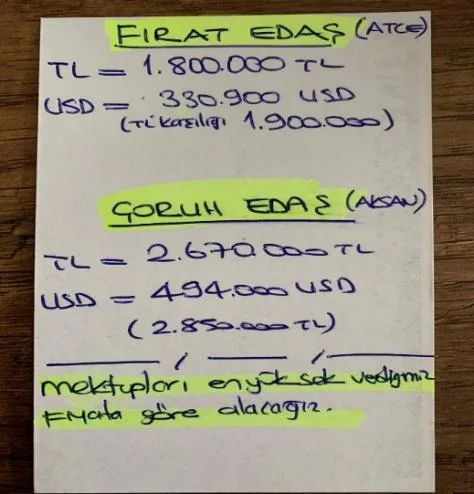 FIRAT EDAŞ (ATCE)
TL = 1.800.000 TL
USD = 330.900 USD
(TL karşılığı 1.900.000)
ÇORUH EDAŞ (AKSAN)
TL = 2.670.000 TL
USD = 494.000 USD
(2.850.000 TL)
mektupları en yüksek verdiğimiz
fiyata göre alacağız.